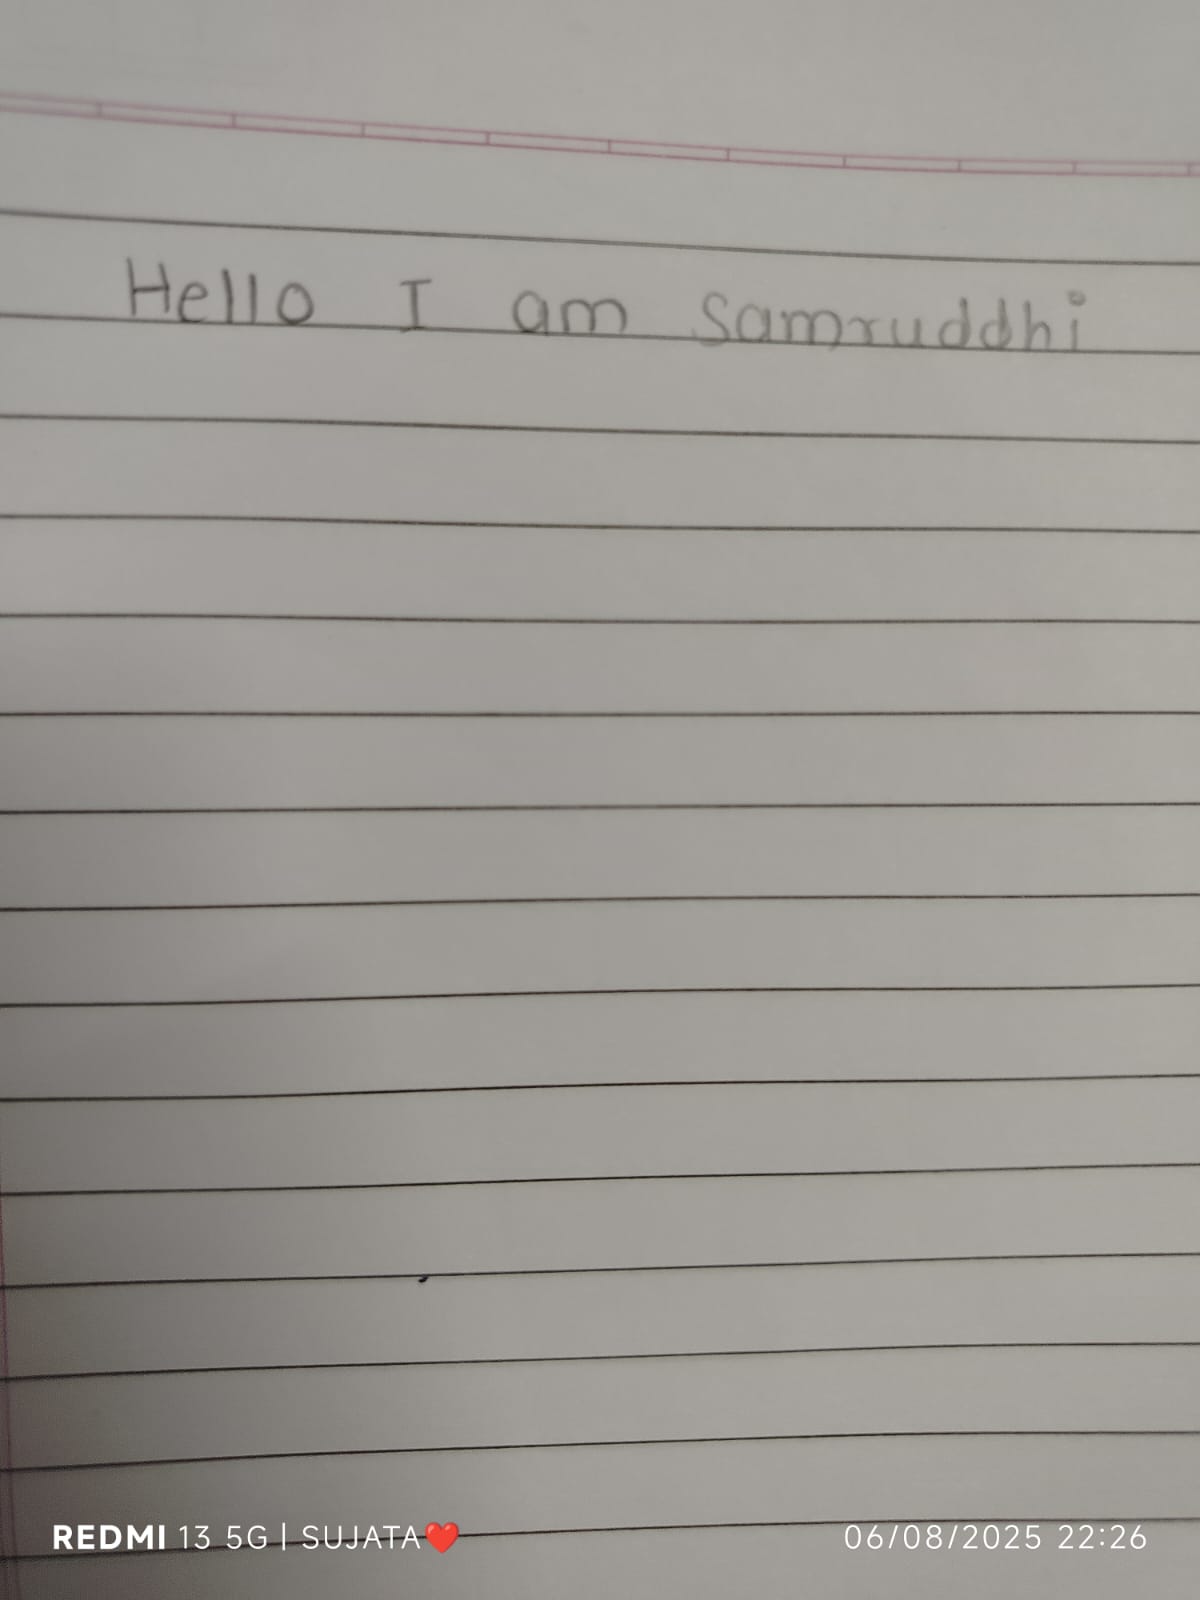 Hello I am Samruddhi
REDMI 13 5G | SUJATA❤️
06/08/2025 22:26